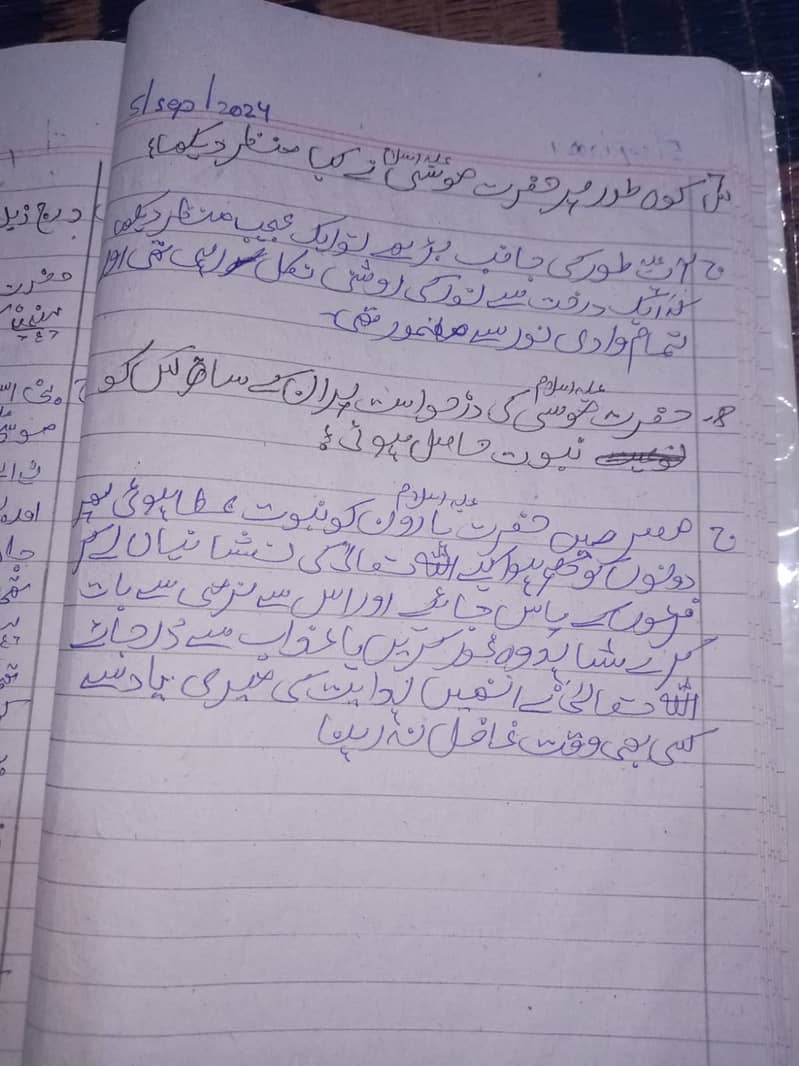 5/sep/2024
س کوہ طور پر حضرت موسٰی علیہ اسلام نے کیا منظر دیکھا؟
ج آپؑ طور کی جانب بڑھے تو ایک عجیب منظر دیکھا
کہ ایک درخت سے نور کی روشنی نکل رہی تھی اور
تمام وادی نور سے معمور تھی۔
8۔ حضرت موسٰی علیہ اسلام کی درخواست پر ان کے ساتھ کس کو
نبوت حاصل ہوئی؟
ج مصر میں حضرت ہارون علیہ اسلام کو نبوت عطا ہوئی پھر
دونوں کو حکم ہوا کہ اللہ تعالٰی کی نشانیاں لے کر
فرعون کے پاس جائے اور اس سے نرمی سے بات
کرے شاید وہ غور کریں یا عذاب سے ڈر جائے
اللہ تعالٰی نے انھیں ہدایت کی میری یاد سے
کسی بھی وقت غافل نہ رہنا
درج ذیل
حضرت